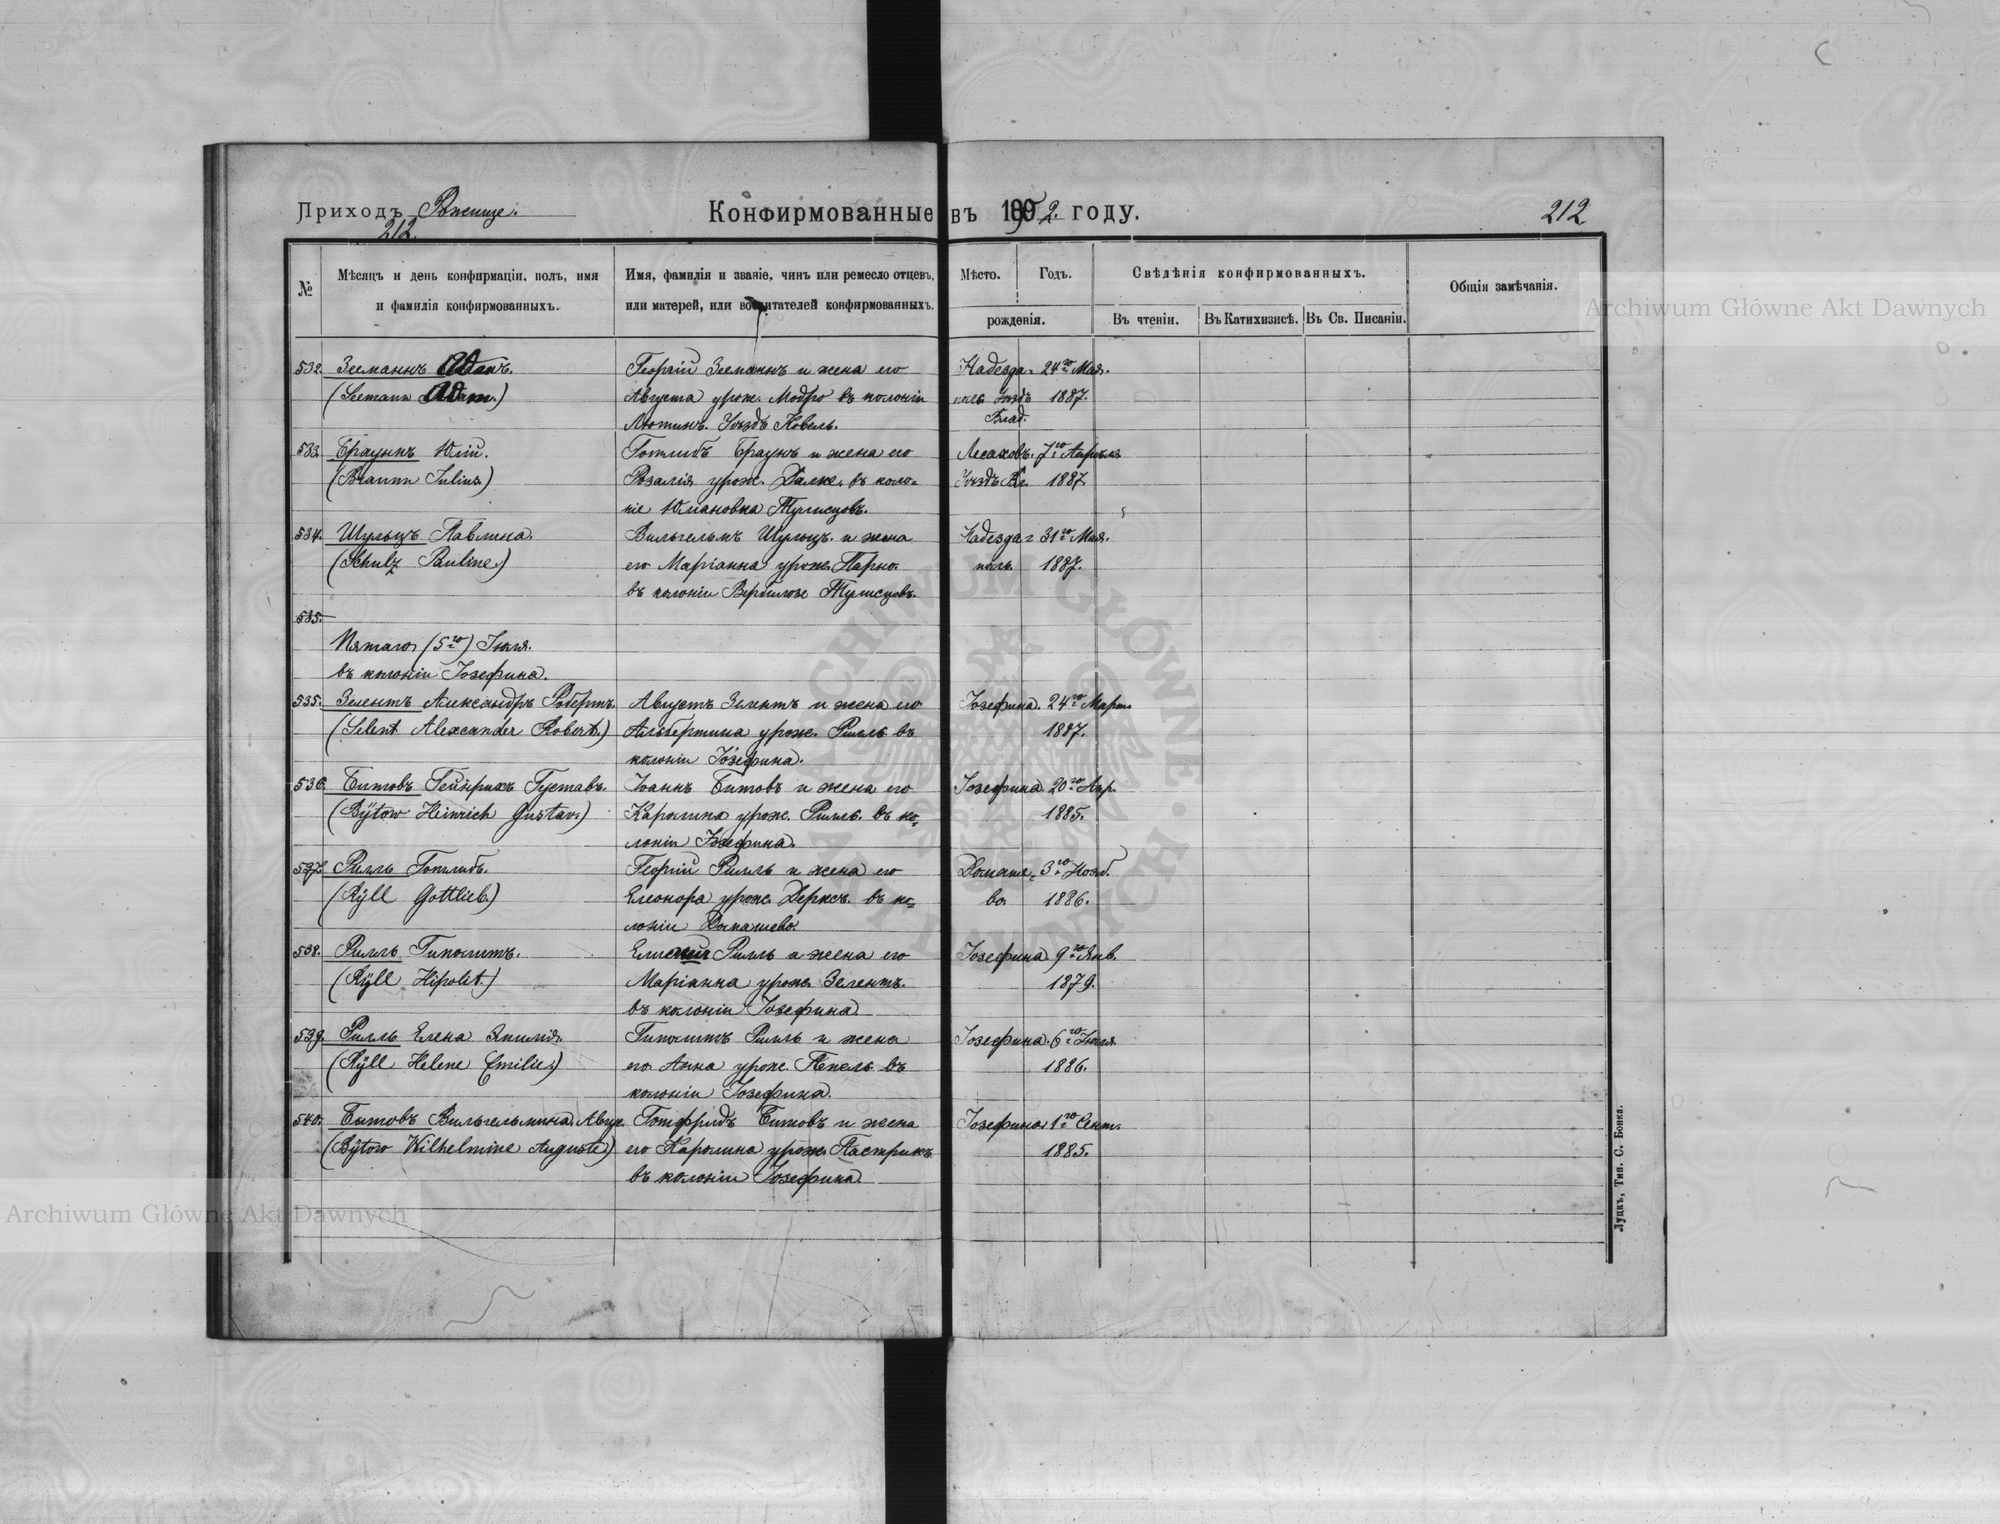 Приходъ Рожище.
212.
Конфирмованные въ 1902 году.
212
№
Мѣсяцъ и день конфирмаціи, полъ, имя
и фамилія конфирмованныхъ.
Имя, фамилія и званіе, чинъ или ремесло отцевъ,
или матерей, или воспитателей конфирмованныхъ.
Мѣсто.
Годъ.
рожденія.
Свѣдѣнія конфирмованныхъ.
Въ чтеніи.
Въ Катихизисѣ.
Въ Св. Писаніи.
Общія замѣчанія.
532. Зееманнъ Адамъ. Георгій Зееманнъ и жена его Надезда- 24го Мая.
(Seemann Adam.) Августа урож. Модро въ колоніи Уѣздъ 1887.
Лютинъ. Уѣздъ Ковель. Влад.
533. Браунъ Юлій. Готлибъ Браунъ и жена его 7го Апрѣля
(Braunn Julius) Розалія урож. Далке, въ коло- Уѣздъ Вл. 1887.
ніе Юлiановка Тулисцовъ.
534. Шульцъ Павлина. Вильгельмъ Шульцъ и жена Надезда= 31го Мая.
(Schulz Pauline.) его Маріанна урож. поль 1887.
въ колоніи Тулисцовъ.
535.
Пятаго (5го) Іюля.
въ колоніи Іозефина.
535. Зелентъ Александръ Робертъ. Августъ Зелентъ и жена его Іозефина. 24го Март.
(Selent Alexander Robert.) Альбертина урож. Рилль въ 1887.
колоніи Іозефина.
536. Битовъ Гейнрихъ Густавъ. Іоаннъ Битовъ и жена его Іозефина. 20го Апр.
(Bÿtow Heinrich Gustav.) Каролина урож. Рилль. въ ко= 1885.
лоніи Іозефина.
537. Рилль Готлибъ. Георгій Рилль и жена его Домаше= 3го Нояб.
(Rÿll Gottlieb.) Елеонора урож. Дерксъ. въ ко= во. 1886.
лоніи Домашево.
538. Рилль Гиполитъ. Рилль и жена его Іозефина 9го Янв.
(Rÿll Hipolit.) Маріанна урож. Зелентъ. 1879.
въ колоніи Іозефина.
539. Рилль Елена Эмилія. Гиполитъ Рилль и жена Іозефина. 6го Іюля
(Rÿll Helene Emilie.) его Анна урож. въ 1886.
колоніи Іозефина.
540. Бытовъ Вильгельмина Авгус. Готфридъ Битовъ и жена Іозефина. 1го Сент.
(Bÿtow Wilhelmine Auguste) его Каролина урож. Пастрикъ 1885.
въ колоніи Іозефина.
Луцкъ, Тип. С. Бонка.
Archiwum Główne Akt Dawnych
Archiwum Główne Akt Dawnych
ARCHIWUM GŁÓWNE AKT DAWNYCH